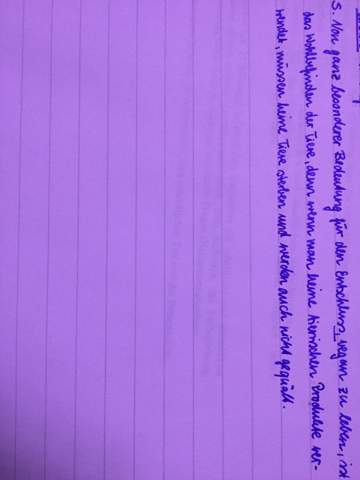 5. Von ganz besonderer Bedeutung für den Entschluss, vegan zu leben, ist
das Wohlbefinden der Tiere, denn wenn man keine tierischen Produkte ver-
wendet, müssen keine Tiere sterben und werden auch nicht gequält.